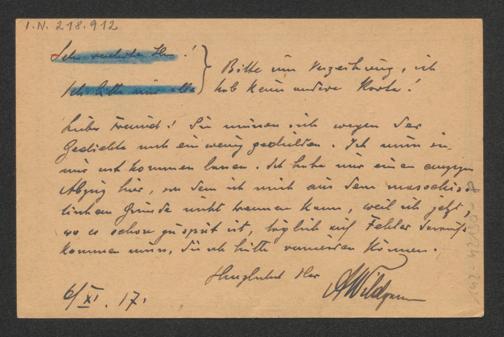 I.N. 218.912
Sehr verehrter Herr!
Ich bitte um
Bitte um Verzeihung, ich
hab keine andere Karte!
Lieber Freund! Sie müssen sich wegen der
Gedichte noch ein wenig gedulden. Ich muss sie
mir erst kommen lassen. Ich habe nur einen einzigen
Abzug hier, von dem ich mich aus dem
Grunde nicht trennen kann, weil ich jetzt,
wo es schon zu spät ist, täglich auf Fehler darauf
kommen muss, die ich hätte vermeiden können.
Herzlichst Ihr
6/XI. 17. AWildgans